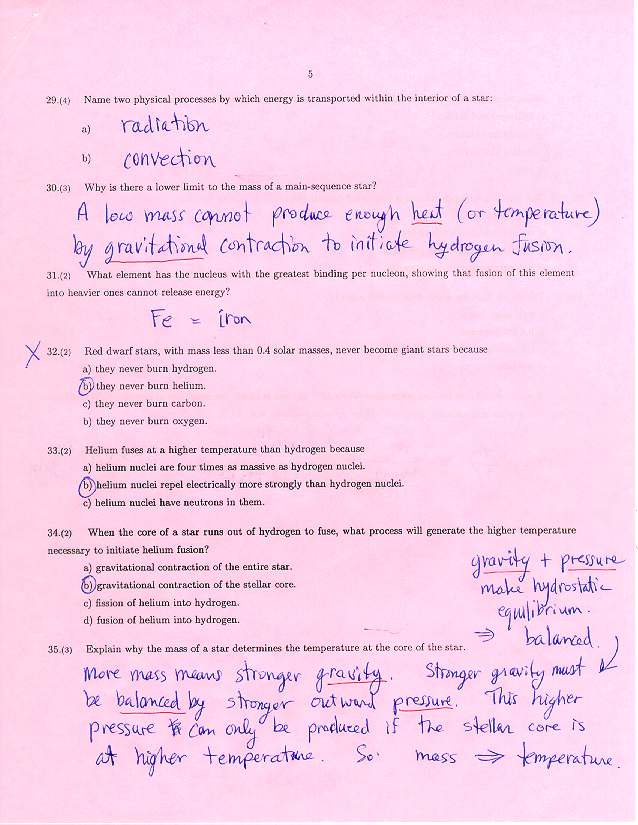 5
29.(4) Name two physical processes by which energy is transported within the interior of a star:
a) radiation
b) convection
30.(3) Why is there a lower limit to the mass of a main-sequence star?
A low mass cannot produce enough heat (or temperature)
by gravitational contraction to initiate hydrogen fusion.
31.(2) What element has the nucleus with the greatest binding per nucleon, showing that fusion of this element
into heavier ones cannot release energy?
Fe = iron
X 32.(2) Red dwarf stars, with mass less than 0.4 solar masses, never become giant stars because
a) they never burn hydrogen.
b) they never burn helium.
c) they never burn carbon.
b) they never burn oxygen.
33.(2) Helium fuses at a higher temperature than hydrogen because
a) helium nuclei are four times as massive as hydrogen nuclei.
b) helium nuclei repel electrically more strongly than hydrogen nuclei.
c) helium nuclei have neutrons in them.
34.(2) When the core of a star runs out of hydrogen to fuse, what process will generate the higher temperature
necessary to initiate helium fusion?
a) gravitational contraction of the entire star.
b) gravitational contraction of the stellar core.
c) fission of helium into hydrogen.
d) fusion of helium into hydrogen.
gravity + pressure
make hydrostatic
equilibrium.
⇒ balanced.
35.(3) Explain why the mass of a star determines the temperature at the core of the star.
More mass means stronger gravity. Stronger gravity must
be balanced by stronger outward pressure. This higher
pressure can only be produced if the stellar core is
at higher temperature. So: mass ⇒ temperature.